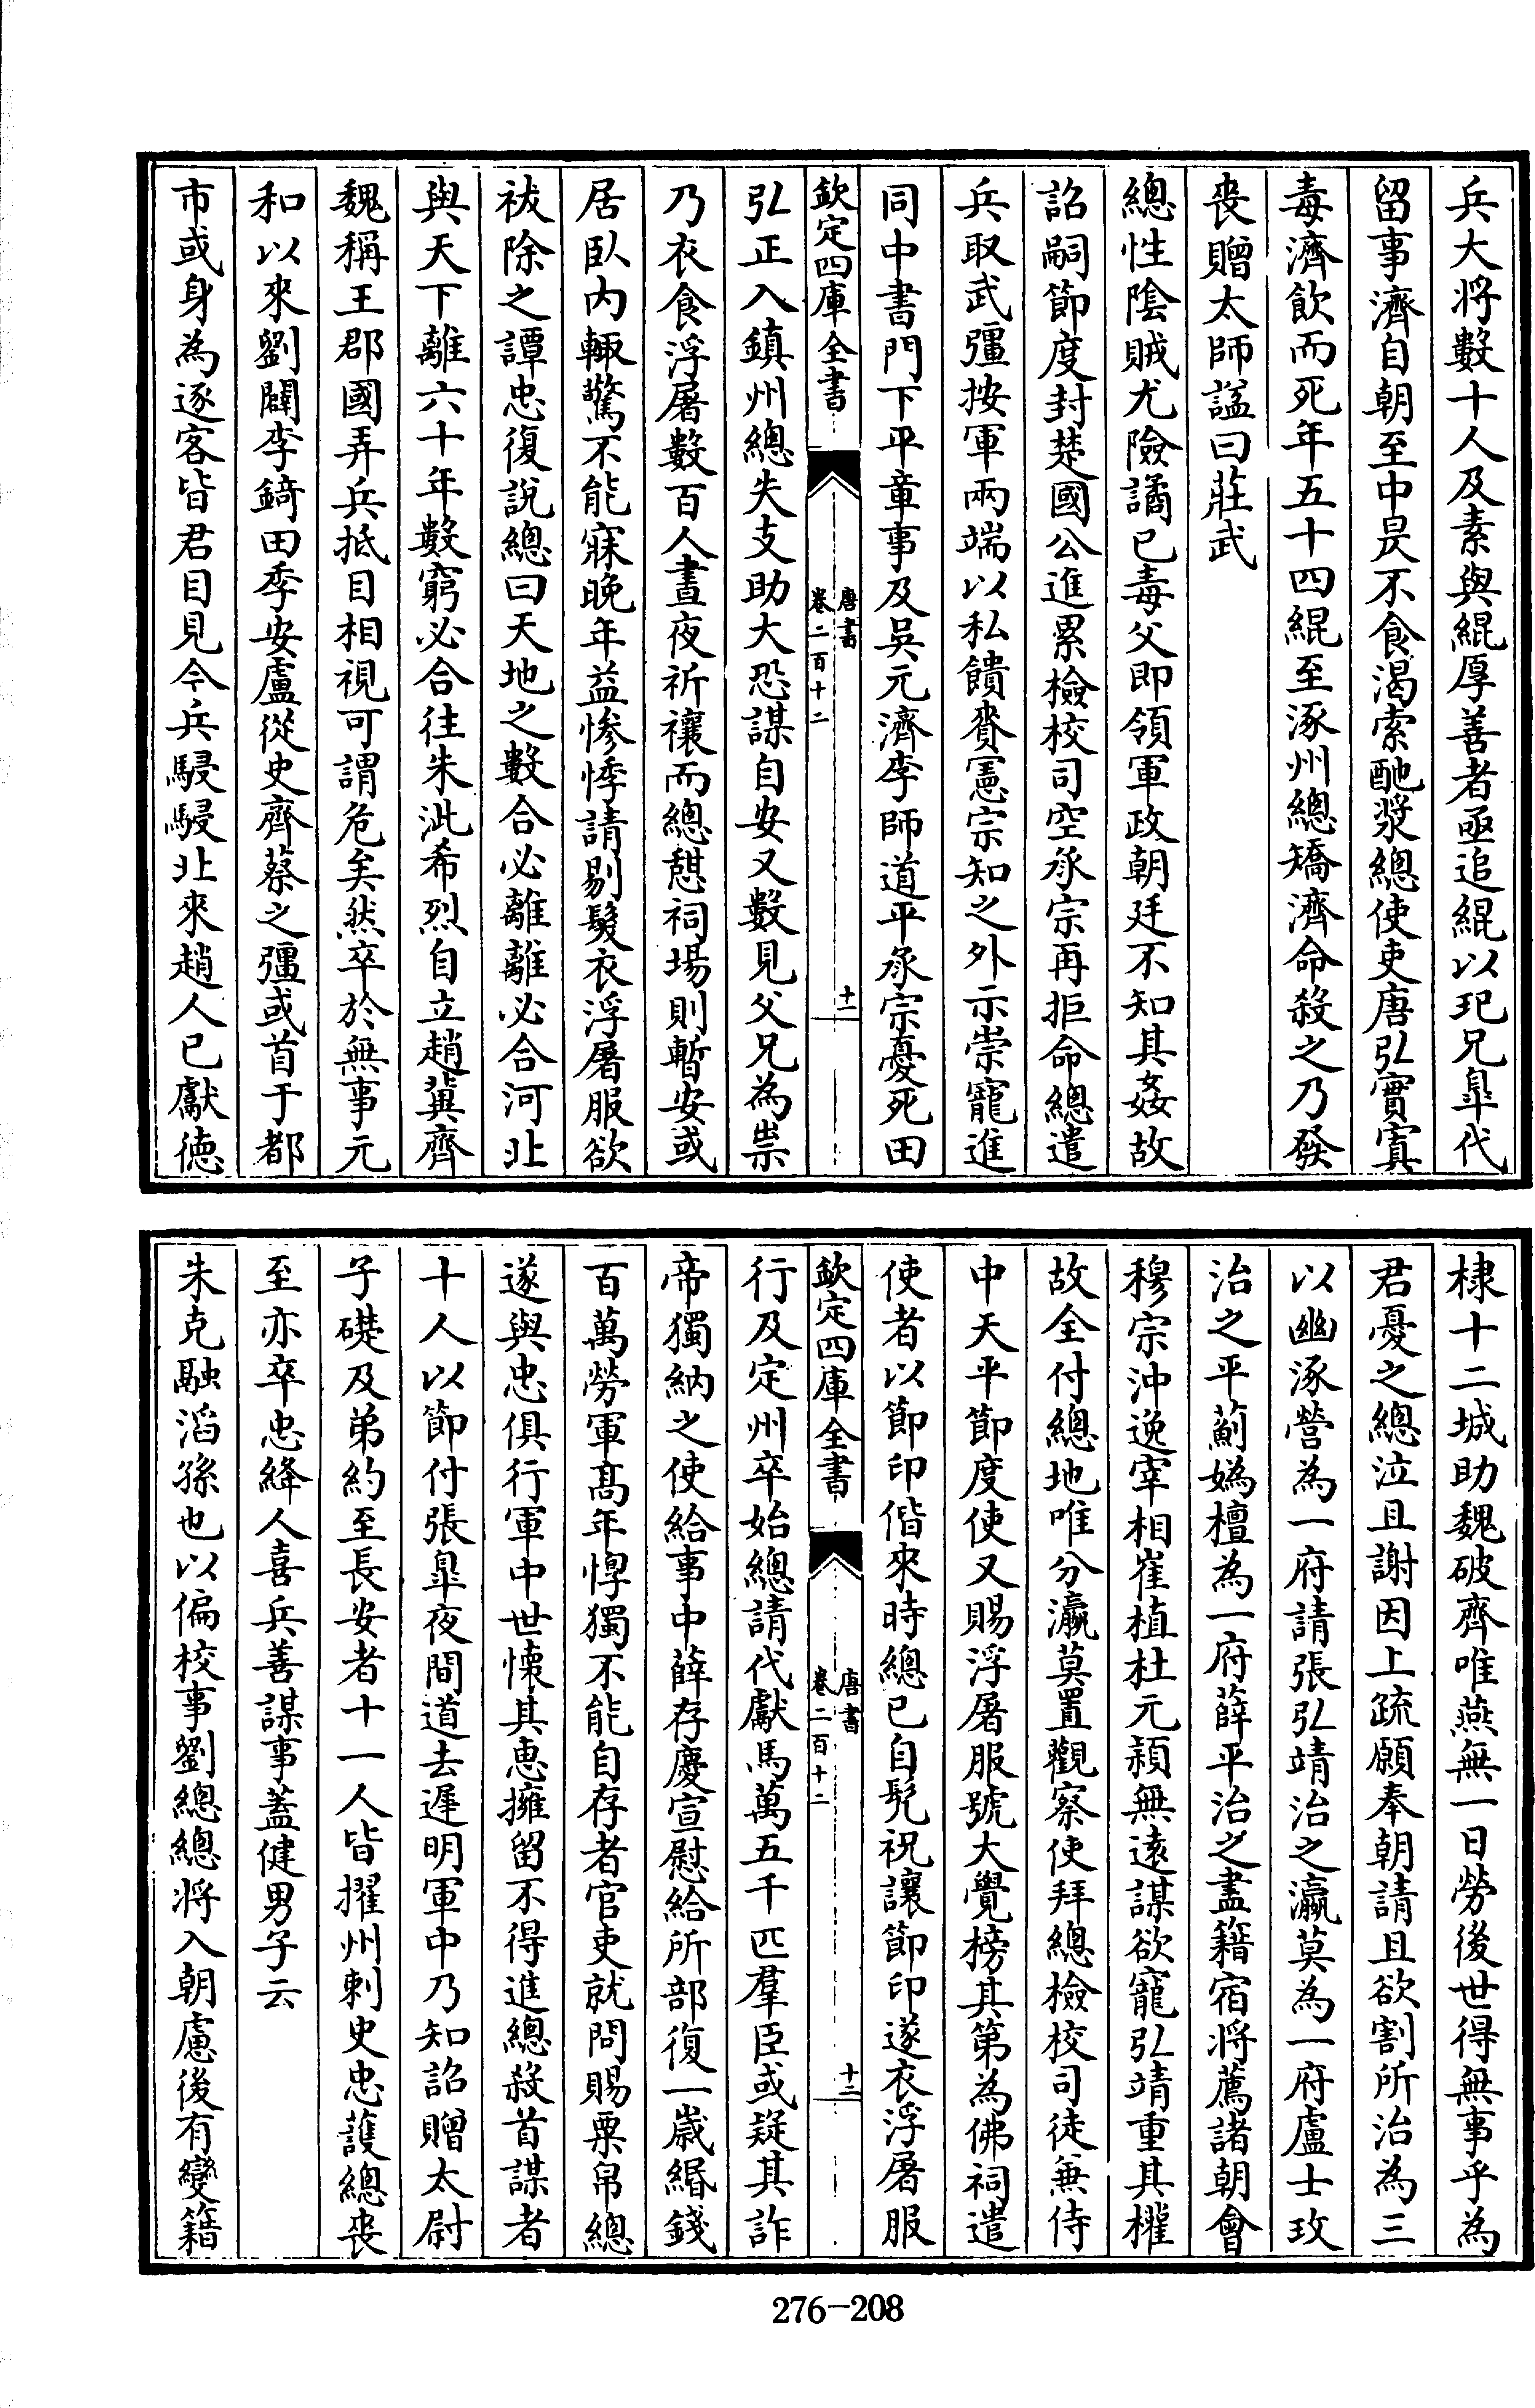 兵大将數十人及素與緄厚善者亟追緄以玘兄臯代
留事濟自朝至中昃不食渴索酏漿總使吏唐弘實寘
毒濟飲而死年五十四緄至涿州總矯濟命殺之乃發
丧贈太師諡曰莊武
總性陰賊尤險譎已毒父即領軍政朝廷不知其姦故
詔嗣節度封楚國公進累檢校司空承宗再拒命總遣
兵取武彊按軍兩端以私饋賚憲宗知之外示崇寵進
同中書門下平章事及吳元濟李師道平承宗憂死田
欽定四庫全書
唐書
卷二百十二
十一
弘正入鎮州總失支助大恐謀自安又數見父兄為祟
乃衣食浮屠數百人晝夜祈禳而總憇祠場則暫安或
居臥内輒驚不能寐晚年益慘悸請剔髮衣浮屠服欲
祓除之譚忠復說總曰天地之數合必離離必合河北
與天下離六十年數窮必合往朱泚希烈自立趙冀齊
魏稱王郡國弄兵抵目相視可謂危矣然卒於無事元
和以來劉闢李錡田季安盧從史齊蔡之彊或首于都
市或身為逐客皆君目見今兵駸駸北來趙人已獻徳
棣十二城助魏破齊唯燕無一日勞後世得無事乎為
君憂之總泣且謝因上疏願奉朝請且欲割所治為三
以幽涿營為一府請張弘靖治之瀛莫為一府盧士玫
治之平薊媯檀為一府薛平治之盡籍宿將薦諸朝會
穆宗沖逸宰相崔植杜元頴無逺謀欲寵弘靖重其權
故全付總地唯分瀛莫置觀察使拜總檢校司徒兼侍
中天平節度使又賜浮屠服號大覺榜其第為佛祠遣
使者以節印偕來時總已自髠祝讓節印遂衣浮屠服
欽定四庫全書
唐書
卷二百十二
十二
行及定州卒始總請代獻馬萬五千匹羣臣或疑其詐
帝獨納之使給事中薛存慶宣慰給所部復一歲緡錢
百萬勞軍髙年惸獨不能自存者官吏就問賜粟帛總
遂與忠俱行軍中世懐其恵擁留不得進總殺首謀者
十人以節付張臯夜間道去遲明軍中乃知詔贈太尉
子礎及弟約至長安者十一人皆擢州刺史忠護總丧
至亦卒忠絳人喜兵善謀事蓋健男子云
朱克融滔孫也以偏校事劉總總将入朝慮後有變籍
276-208